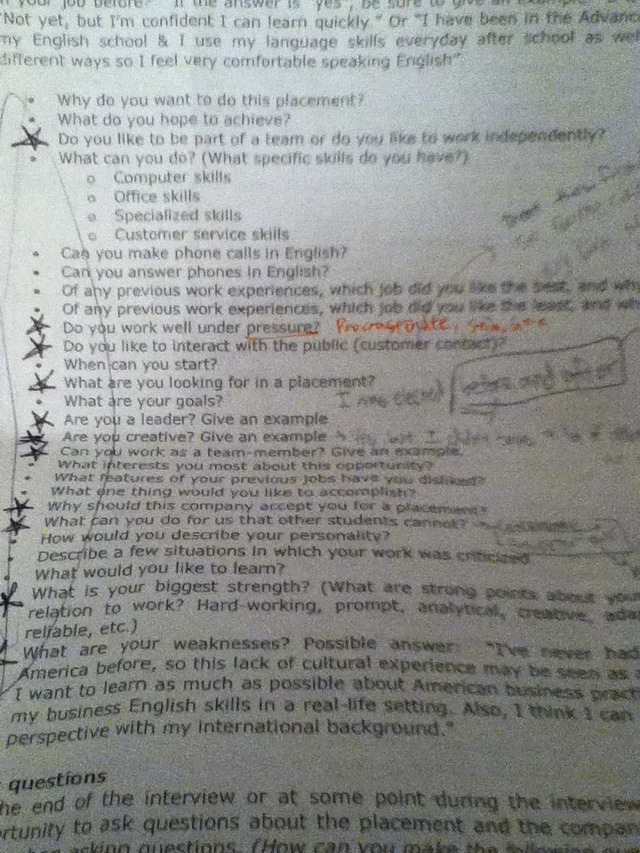 your job before? If the answer is "yes", be sure to give an
"Not yet, but I'm confident I can learn quickly." Or "I have been in the
my English school & I use my language skills everyday after school as
different ways so I feel very comfortable speaking English".
Why do you want to do this placement?
What do you hope to achieve?
Do you like to be part of a team or do you like to work independently?
What can you do? (What specific skills do you have?)
Computer skills
Office skills
Specialized skills
Customer service skills
Can you make phone calls in English?
Can you answer phones in English?
Of any previous work experiences, which job did you like the best, and
Of any previous work experiences, which job did you like the least, and
Do you work well under pressure? Procrastinate,
Do you like to interact with the public (customer contact)?
When can you start?
What are you looking for in a placement?
What are your goals? I was elected before and after
Are you a leader? Give an example
Are you creative? Give an example
Can you work as a team-member? Give an example.
What interests you most about this opportunity?
What features of your previous jobs have you disliked?
What one thing would you like to accomplish?
Why should this company accept you for a placement?
What can you do for us that other students cannot?
How would you describe your personality?
Describe a few situations in which your work was criticized
What would you like to learn?
What is your biggest strength? (What are strong points about
relation to work? Hard-working, prompt, analytical, creative,
reliable, etc.)
What are your weaknesses? Possible answer: "I've never had
America before, so this lack of cultural experience may be seen as
I want to learn as much as possible about American business
my business English skills in a real-life setting. Also, I think I can
perspective with my international background."
questions
the end of the interview or at some point during the interview
to ask questions about the placement and the
asking questions. (How can you make the following